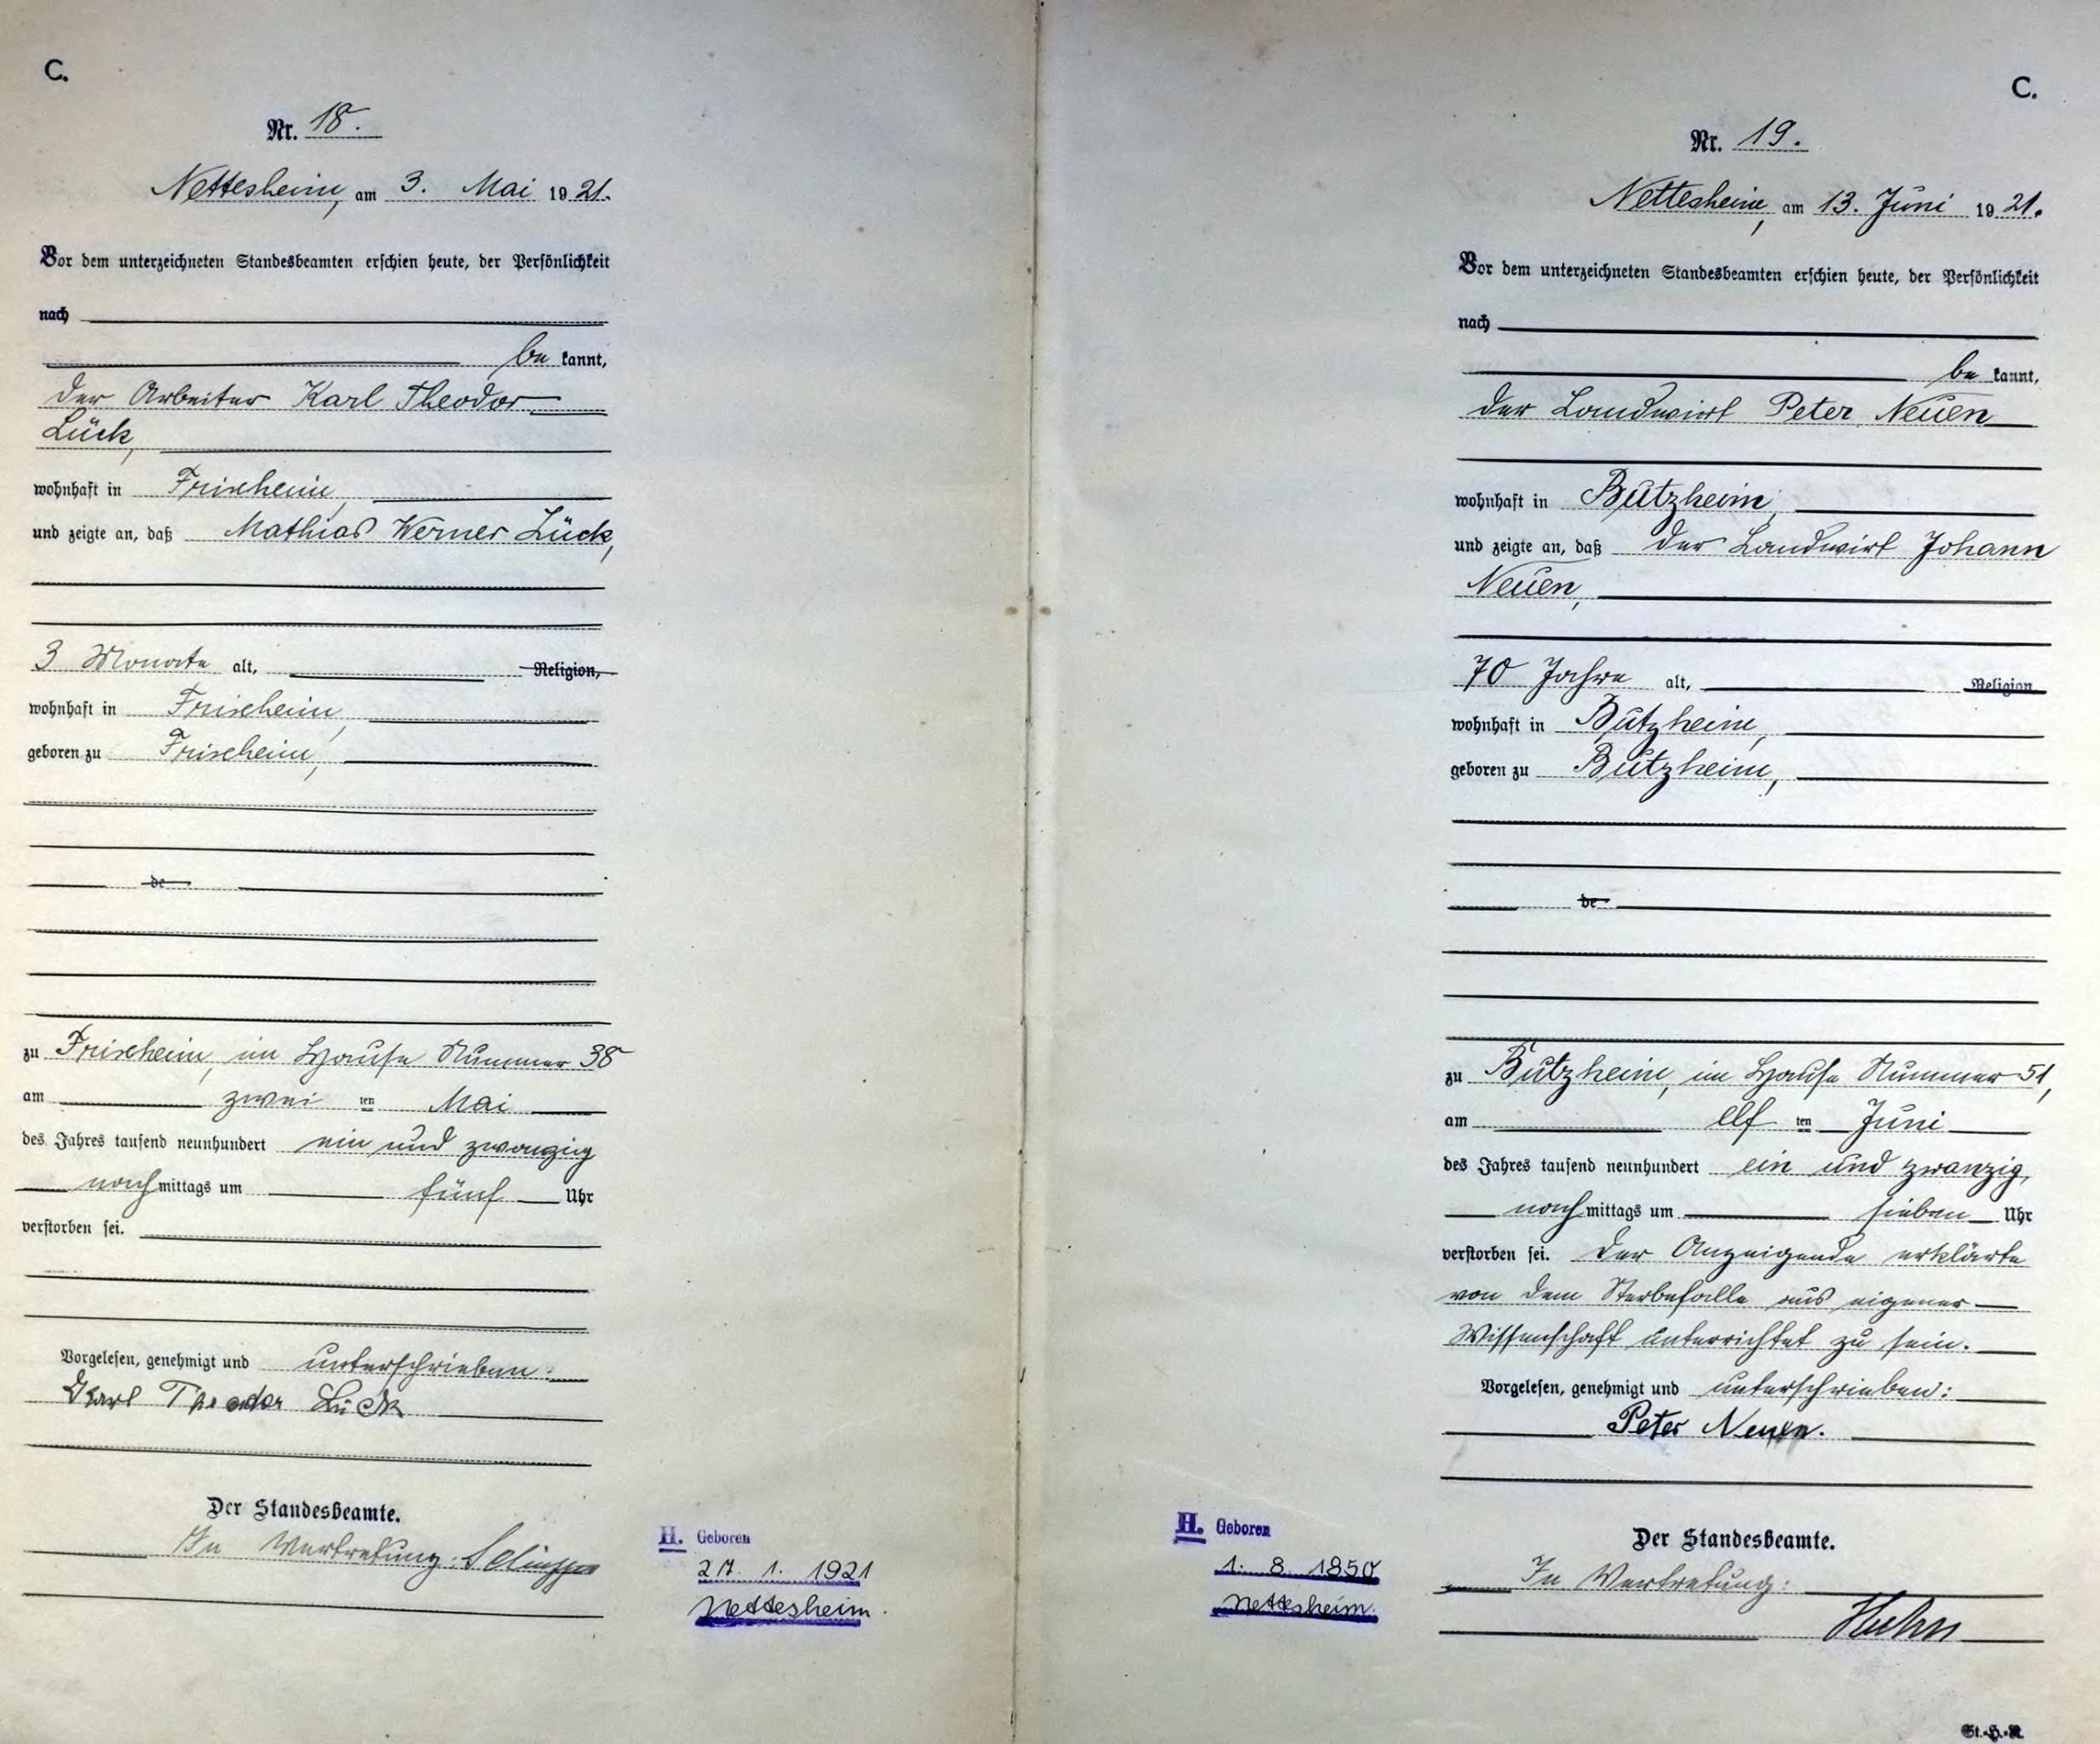 C.
Nr. 18.
Nettesheim, am 3. Mai 1921.
Vor dem unterzeichneten Standesbeamten erschien heute, der Persönlichkeit
nach
be kannt,
der Arbeiter Karl Theodor
Lück,
wohnhaft in Frixheim,
und zeigte an, daß Mathias Werner Lück,
3 Monate alt, Religion,
wohnhaft in Frixheim,
geboren zu Frixheim,
de
zu Frixheim, im Hause Nummer 38
am zwei ten Mai
des Jahres tausend neunhundert ein und zwanzig
nach mittags um fünf Uhr
verstorben sei.
Vorgelesen, genehmigt und unterschrieben:
Karl Theodor Lück
Der Standesbeamte.
In Vertretung:
H. Geboren
27. 1. 1921
Nettesheim.
C.
Nr. 19.
Nettesheim, am 13. Juni 1921.
Vor dem unterzeichneten Standesbeamten erschien heute, der Persönlichkeit
nach
be kannt,
der Landwirt Peter Neuen
wohnhaft in Butzheim,
und zeigte an, daß der Landwirt Johann
Neuen,
70 Jahre alt, Religion,
wohnhaft in Butzheim,
geboren zu Butzheim,
de
zu Butzheim, im Hause Nummer 51,
am elf ten Juni
des Jahres tausend neunhundert ein und zwanzig,
nach mittags um sieben Uhr
verstorben sei. Der Anzeigende erklärte
von dem Sterbefalle aus eigener
Wissenschaft unterrichtet zu sein.
Vorgelesen, genehmigt und unterschrieben:
Peter Neuen.
Der Standesbeamte.
In Vertretung:
Huhn
H. Geboren
1. 8. 1850
Nettesheim.
St.-H.-R.